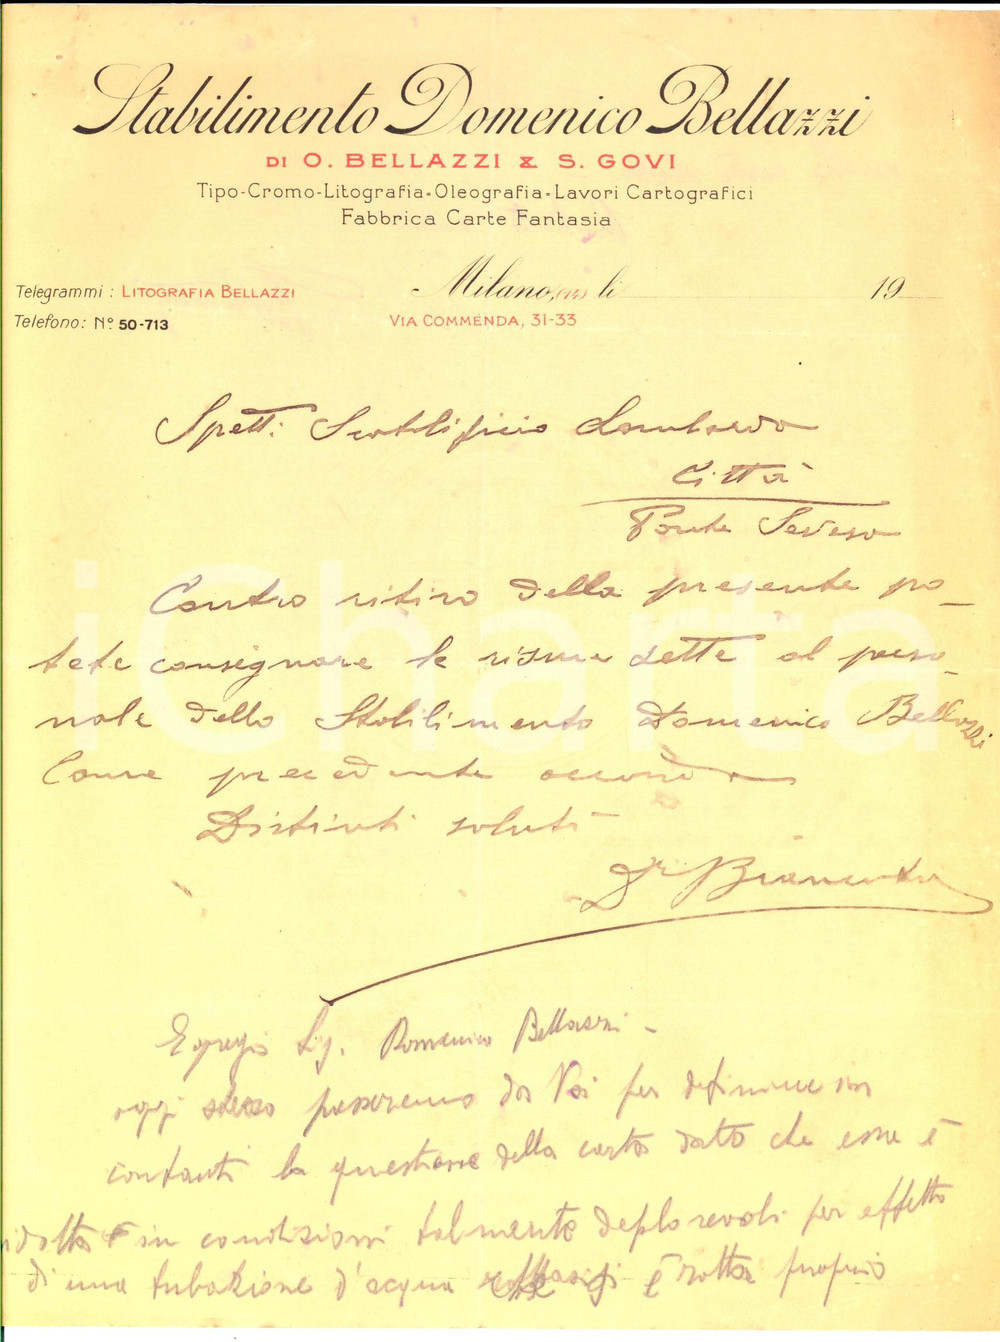 Stabilimento Domenico Bellazzi
DI O. BELLAZZI & S. GOVI
Tipo-Cromo-Litografia-Oleografia-Lavori Cartografici
Fabbrica Carte Fantasia
Telegrammi: LITOGRAFIA BELLAZZI
Milano, li 19
Telefono: Nº 50-713
VIA COMMENDA, 31-33
Spett. Scatolificio Lombardo
Città
Ponte Seveso
Contro ritiro della presente po-
tete consegnare le risme dette al perso-
nale dello Stabilimento Domenico Bellazzi
Come precedente accordo
Distinti saluti
Dr
Egregio Sig. Domenico Bellazzi -
oggi stesso passeremo da Voi per definire in
contanti la questione della carta dato che essa è
ridotta in condizioni talmente deplorevoli per effetto
di una tubazione d'acqua è rotta proprio
iCharta